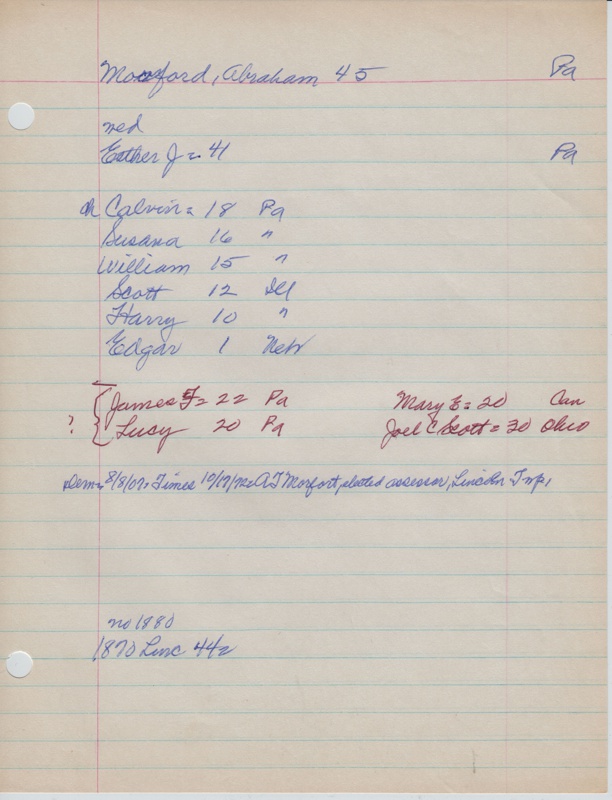 Morford, Abraham 45 Pa
med
Esther J = 41 Pa
ch Calvin = 18 Pa
Susana 16 "
William 15 "
Scott 12 Ill
Harry 10 "
Edgar 1 Neb
? James F = 22 Pa Mary E = 20 Can
Lucy 20 Pa Joel C Scott = 30 Ohio
Dem = 8/8/07 = Times 10/17/72 = A J Morfort, elected assessor, Lincoln Twp,
no 1880
1870 Linc 442